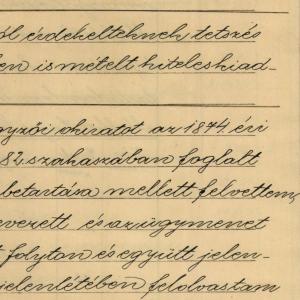 ól érdekelteknek tetszés
en ismételt hiteles kiad-
gyzői okiratot az 1874. évi
82. szakaszában foglalt
betartása mellett felvettem,
evezett és az ügymenet
t folyton és együtt jelen-
jelenlétében felolvastam